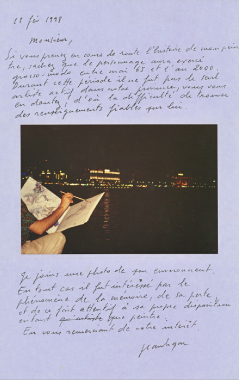 22 fév 1998
Monsieur,
Si vous prenez en cours de route l'histoire de mon
tre, sachez que le personnage aura exercé
grosso-modo entre mai 65 et l'an 2000.
Durant cette période il ne fut pas le seul
artiste actif dans notre province, vous vous
en doutez ; d'où la difficulté de trouver
des renseignements fiables sur lui.
Je joins une photo de son environnement.
En tout cas il fut intéressé par le
phénomène de la mémoire, de sa perte
et de ce fait attentif à sa propre disparition
en tant que peintre.
En vous remerciant de votre intérêt